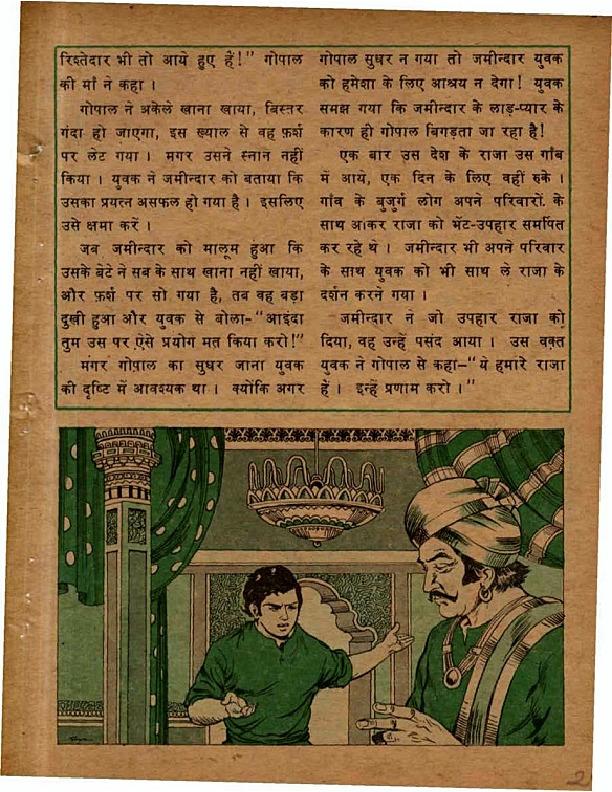 रिश्तेदार भी तो आये हुए हैं!” गोपाल
की माँ ने कहा ।
गोपाल ने अकेले खाना खाया, बिस्तर
गंदा हो जाएगा, इस ख्याल से वह फ़र्श
पर लेट गया । मगर उसने स्नान नहीं
किया । युवक ने जमीन्दार को बताया कि
उसका प्रयत्न असफल हो गया है । इसलिए
उसे क्षमा करें ।
जब जमीन्दार को मालूम हुआ कि
उसके बेटे ने सब के साथ खाना नहीं खाया,
और फ़र्श पर सो गया है, तब वह बड़ा
दुखी हुआ और युवक से बोला-“आइंदा
तुम उस पर ऐसे प्रयोग मत किया करो!”
मगर गोपाल का सुधर जाना युवक
की दृष्टि में आवश्यक था । क्योंकि अगर
गोपाल सुधर न गया तो जमीन्दार युवक
को हमेशा के लिए आश्रय न देगा! युवक
समझ गया कि जमीन्दार के लाड़-प्यार के
कारण ही गोपाल बिगड़ता जा रहा है!
एक बार उस देश के राजा उस गाँव
में आये, एक दिन के लिए वहीं रुके ।
गाँव के बुजुर्ग लोग अपने परिवारों के
साथ आकर राजा को भेंट-उपहार समर्पित
कर रहे थे । जमीन्दार भी अपने परिवार
के साथ युवक को भी साथ ले राजा के
दर्शन करने गया ।
जमीन्दार ने जो उपहार राजा को
दिया, वह उन्हें पसंद आया । उस वक़्त
युवक ने गोपाल से कहा-“ये हमारे राजा
हैं । इन्हें प्रणाम करो ।”
2